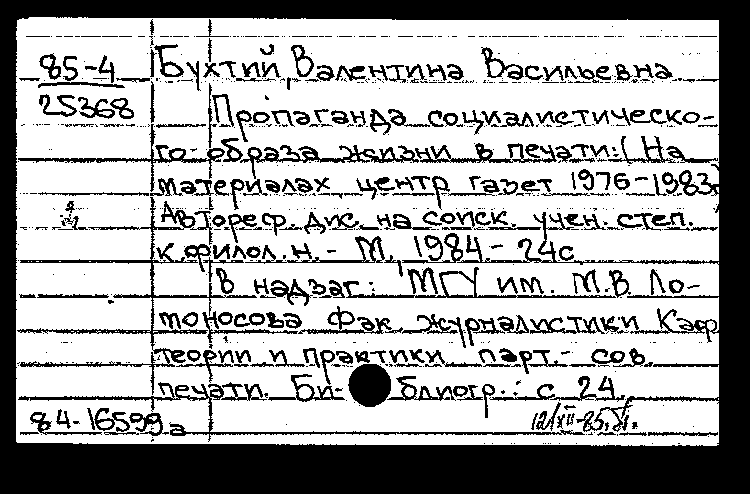 85-4 Бухтий, Валентина Васильевна
25368 Пропаганда социалистическо-
го образа жизни в печати: (На
материалах центр газет 1976-1983г)
Автореф. дис. на соиск. учен. степ.
к.филол.н. - М, 1984. - 24с
В надзаг: МГУ им. М.В Ло-
моносова Фак. журналистики Каф
теории и практики парт.- сов.
печати. Би- блиогр.: с 24.
84-16599а 12/XII-85.